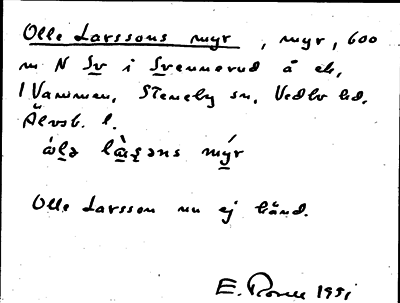 Olle Larssons myr, myr, 600
m N Sv i Svennerud å ek,
I Vammen, Steneby sn, Vedbo hd.
Älvsb. l.
Olle Larsson nu ej känd.
1951